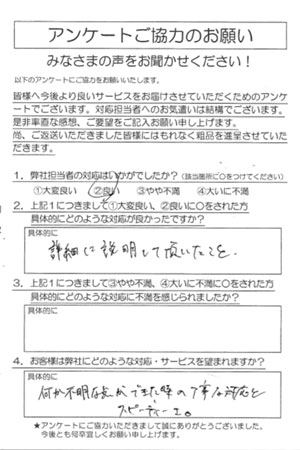 アンケートご協力のお願い
みなさまの声をお聞かせください！
以下のアンケートにご協力をお願いいたします。
皆様へ今後より良いサービスをお届けさせていただくためのアンケ
ートでございます。対応担当者へのお気遣いは結構でございます。
是非率直な感想、ご要望をご記入お願い申し上げます。
尚、ご返送いただきました皆様にはもれなく粗品を進呈させていた
だきます。
1．弊社担当者の対応はいかがでしたか？（該当箇所に〇をつけてください）
①大変良い ②良い ③やや不満 ④大いに不満
2．上記1につきまして①大変良い、②良いに〇をされた方
具体的にどのような対応が良かったですか？
具体的に
詳細に説明して頂いたこと。
3．上記1につきまして③やや不満、④大いに不満に〇をされた方
具体的にどのような対応に不満を感じられましたか？
具体的に
4．お客様は弊社にどのような対応・サービスを望まれますか？
具体的に
何か不明な点ができた時の丁寧な対応を
スピーディーに。
★アンケートにご協力いただきまして誠にありがとうございました。
今後とも何卒宜しくお願い申し上げます。